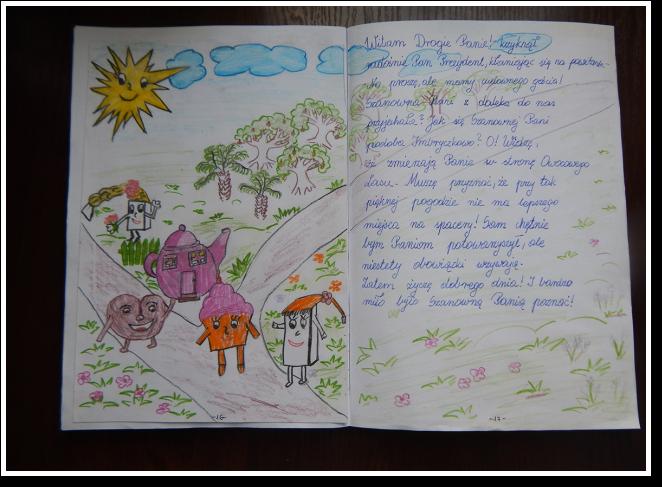 Witam Drogie Panie!- krzyknął
radośnie Pan Prezydent, kłaniając się na powitanie.-
No proszę, ale mamy cudownego gościa!
Szanowna Pani z daleka do nas
przyjechała? Jak się Szanownej Pani
podoba Imbryczkowo? O! Widzę,
że zmierzają Panie w stronę Owocowego
Lasu. Muszę przyznać, że przy tak
pięknej pogodzie nie ma lepszego
miejsca na spacery! Sam chętnie
bym Paniom potowarzyszył, ale
niestety obowiązki wzywają.
Zatem życzę dobrego dnia! I bardzo
miło było Szanowną Panią poznać!
-16-
-17-